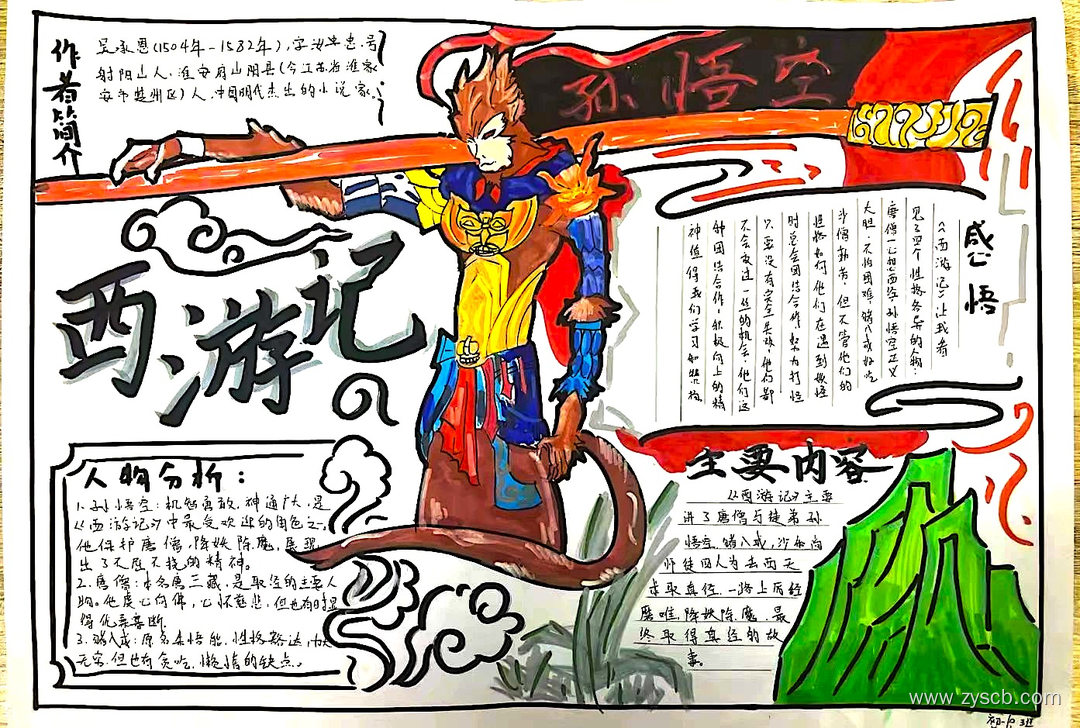 作者简介
吴承恩(1504年-1582年),字汝忠,号
射阳山人,淮安府山阳县(今江苏省淮
安市楚州区)人,中国明代杰出的小说家。
孙悟空
西游记
感悟
《西游记》让我看
见了四个性格各异的人物:
唐僧一心想西行,孙悟空正义
大胆,不怕困难,猪八戒好吃
沙僧勤劳,但不管他们的
性格如何,他们在遇到妖怪
时总会团结合作,努力打怪
只要没有完全失败,他们都
不会放过一丝的机会,他们这
种团结合作,积极向上的精
神值得我们学习和赞扬。
人物分析:
1.孙悟空:机智勇敢,神通广大,是
《西游记》中最受欢迎的角色之一,
他保护唐僧,降妖除魔,展现
出了不屈不挠的精神。
2.唐僧:本名唐三藏,是取经的主要人
物。他虔心向佛,心怀慈悲,但也有时显
得优柔寡断
3.猪八戒:原名悟能,性格豁达,
但也有贪吃,懒惰的缺点。
主要内容
《西游记》主要
讲了唐僧与徒弟孙
悟空,猪八戒,沙和尚
师徒四人为去西天
求取真经,一路上历经
磨难,降妖除魔,最
终取得真经的故
事。
www.zyscb.com